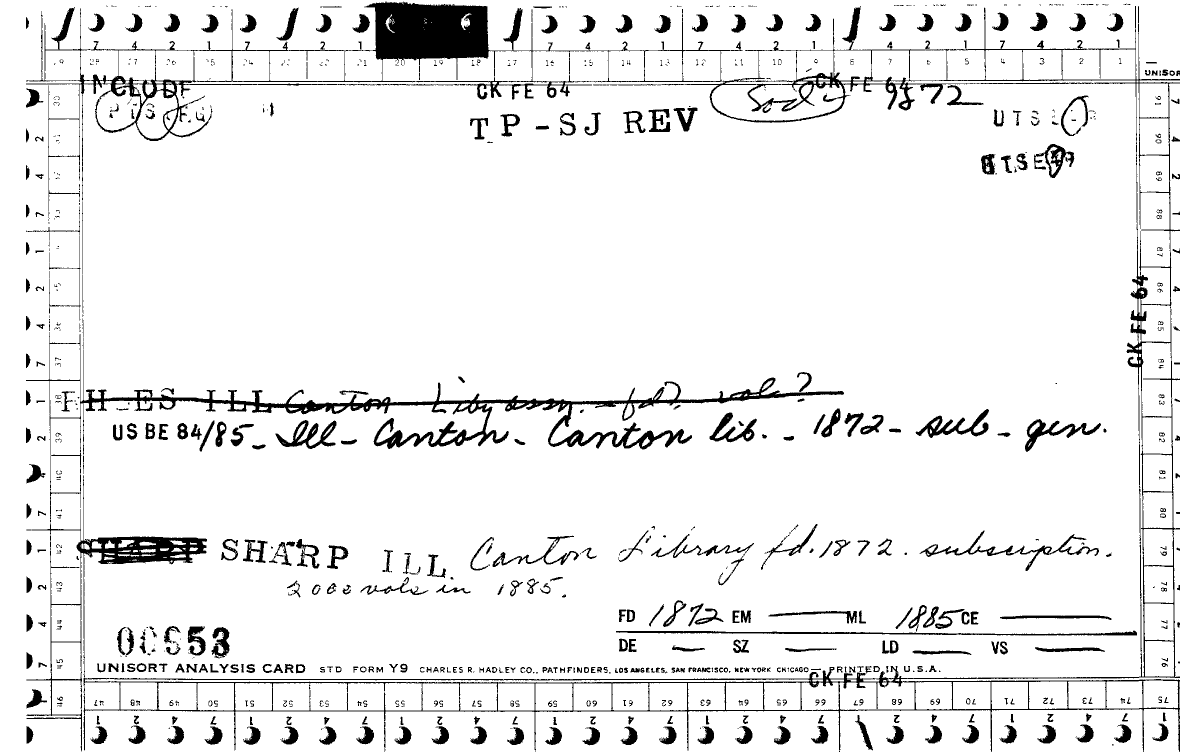 7 4 2 1 7 4 2 1 7 4 2 1 7 4 2 1 7 4 2 1
29 28 27 26 25 24 23 22 21 20 19 18 17 16 15 14 13 12 11 10 9 8 7 6 5 4 3 2 1
UNISOR
INCLUDE CK FE 64 CK FE 64 1872
PTS
TP-SJ REV
UTSE
UTSE
CK FE 64
ILL Canton Liby assn. - fd? vols?
US BE 84/85 - Ill - Canton - Canton lib. - 1872 - sub - gen.
SHARP SHARP ILL. Canton Library fd. 1872. subscription.
2000 vols in 1885.
FD 1872 EM — ML 1885 CE —
DE — SZ — LD — VS —
00653
UNISORT ANALYSIS CARD STD FORM Y9 CHARLES R. HADLEY CO., PATHFINDERS, LOS ANGELES, SAN FRANCISCO, NEW YORK CHICAGO — PRINTED IN U.S.A.
CK FE 64
46 47 48 49 50 51 52 53 54 55 56 57 58 59 60 61 62 63 64 65 66 67 68 69 70 71 72 73 74 75